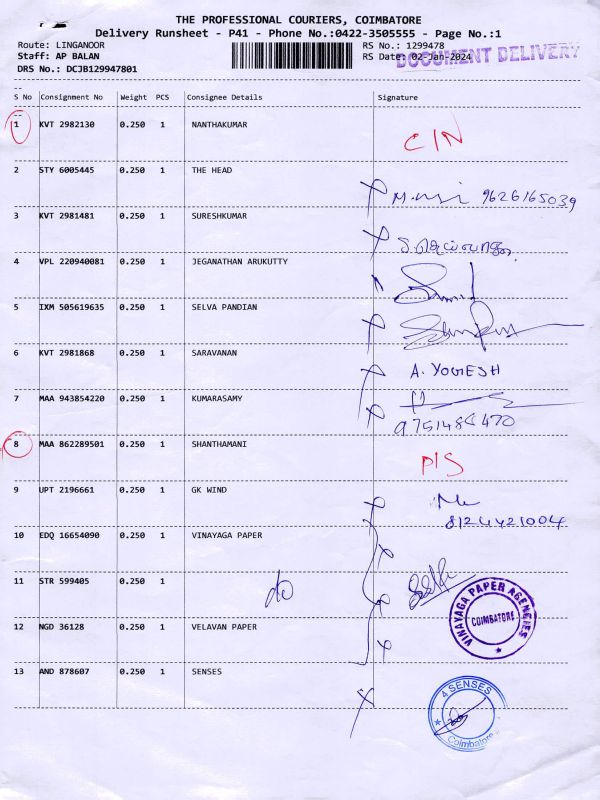 THE PROFESSIONAL COURIERS, COIMBATORE
Delivery Runsheet - P41 - Phone No.:0422-3505555 - Page No.:1
Route: LINGANOOR
RS No.: 1299478
Staff: AP BALAN
RS Date: 02-Jan-2024
DOCUMENT DELIVERY
DRS No.: DCJB129947801
S No Consignment No Weight PCS Consignee Details Signature
1 KVT 2982130 0.250 1 NANTHAKUMAR
C/N
2 STY 6005445 0.250 1 THE HEAD
9626165039
3 KVT 2981481 0.250 1 SURESHKUMAR
4 VPL 220940081 0.250 1 JEGANATHAN ARUKUTTY
5 IXM 505619635 0.250 1 SELVA PANDIAN
6 KVT 2981868 0.250 1 SARAVANAN
A. YOGESH
7 MAA 943854220 0.250 1 KUMARASAMY
8 MAA 862289501 0.250 1 SHANTHAMANI
P/S
9 UPT 2196661 0.250 1 GK WIND
8124421004
10 EDQ 16654090 0.250 1 VINAYAGA PAPER
11 STR 599405 0.250 1 do
VINAYAGA PAPER AGENCIES
COIMBATORE
12 NGD 36128 0.250 1 VELAVAN PAPER
13 AND 878607 0.250 1 SENSES
4 SENSES
Coimbatore